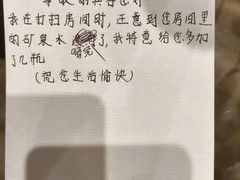 尊敬的宾客您好
我在打扫房间时,注意到您房间里
的矿泉水喝完了,我特意给您多加
了几瓶
(祝您生活愉快)